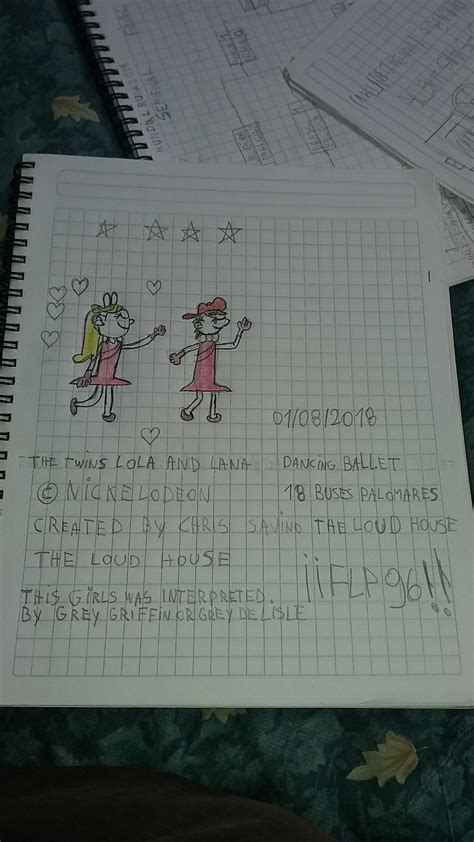 01/08/2018
THE TWINS LOLA AND LANA DANCING BALLET
© NICKELODEON 18 BUSES PALOMARES
CREATED BY CHRIS SAVINO THE LOUD HOUSE
THE LOUD HOUSE
¡¡FLP96!!
THIS GIRLS WAS INTERPRETED.
BY GREY GRIFFIN OR GREY DE LISLE